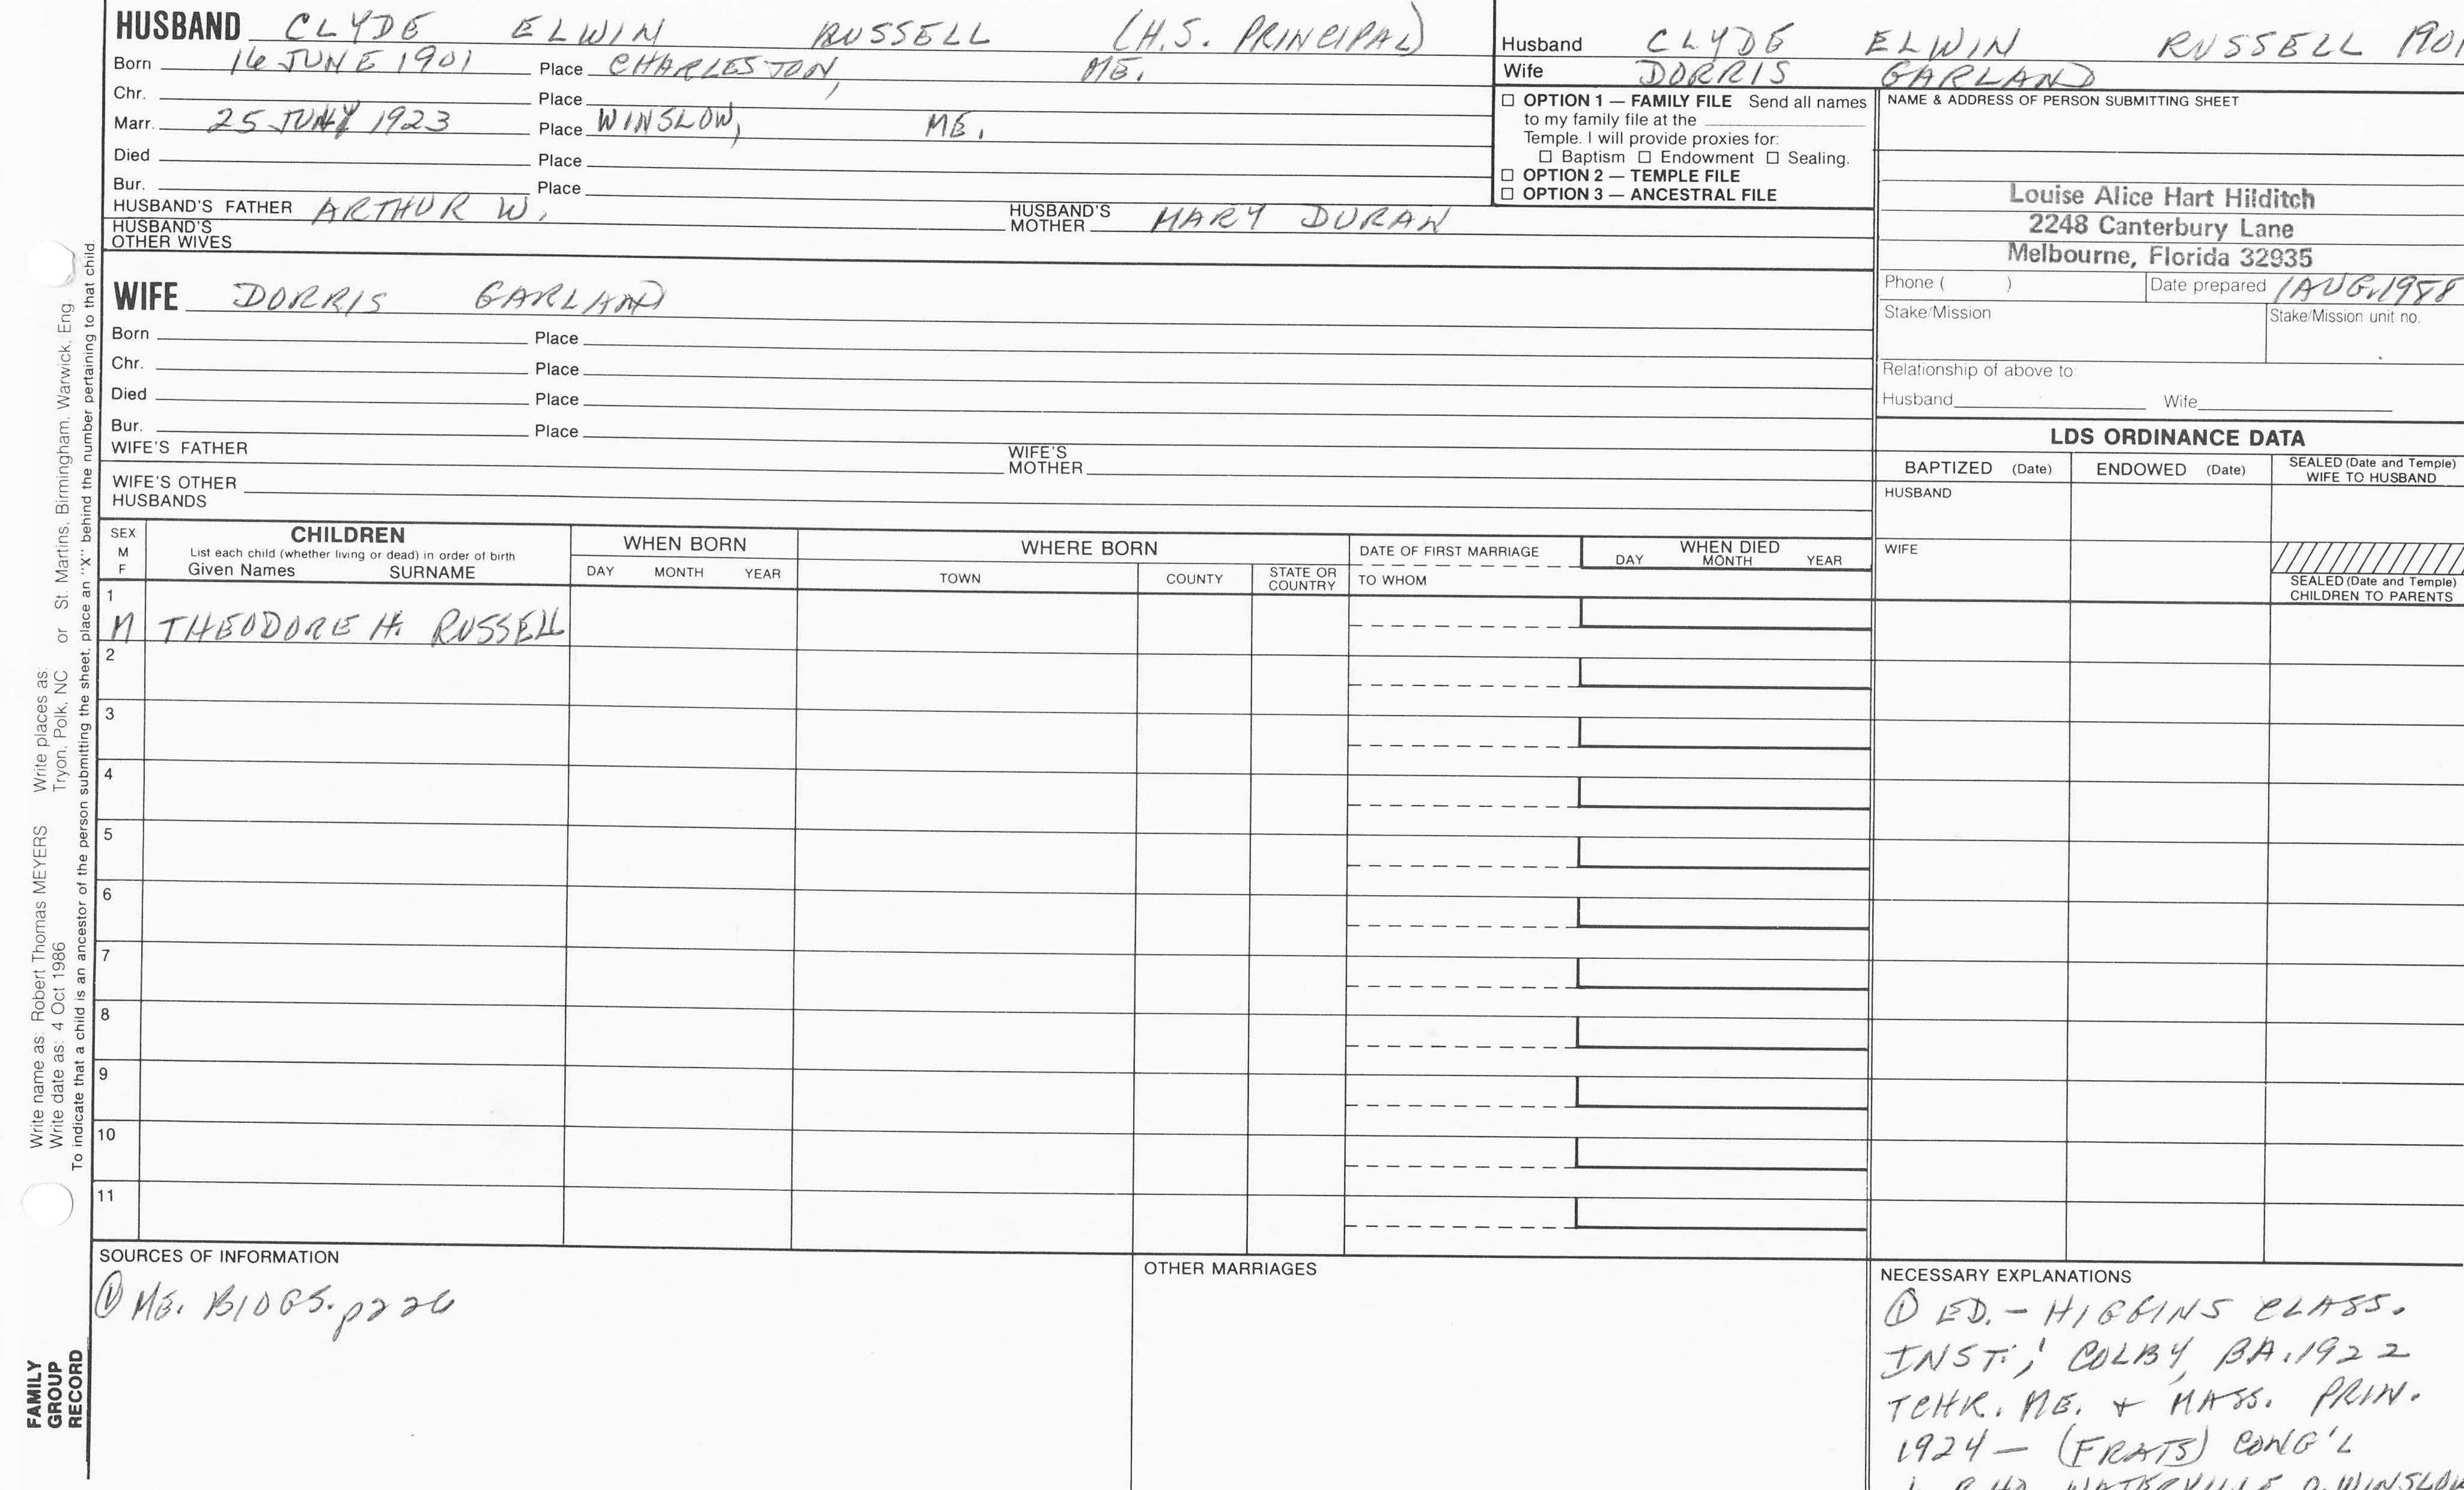 HUSBAND CLYDE ELWIN RUSSELL (H.S. PRINCIPAL)
Born 16 JUNE 1901 Place CHARLESTON, ME.
Chr. Place
Marr. 25 1923 Place WINSLOW, ME.
Died Place
Bur. Place
HUSBAND'S FATHER ARTHUR W. HUSBAND'S MOTHER MARY DURAN
HUSBAND'S OTHER WIVES
WIFE DORRIS GARLAND
Born Place
Chr. Place
Died Place
Bur. Place
WIFE'S FATHER WIFE'S MOTHER
WIFE'S OTHER HUSBANDS
Husband CLYDE ELWIN RUSSELL 1901
Wife DORRIS GARLAND
☐ OPTION 1 — FAMILY FILE Send all names
to my family file at the
Temple. I will provide proxies for:
☐ Baptism ☐ Endowment ☐ Sealing.
☐ OPTION 2 — TEMPLE FILE
☐ OPTION 3 — ANCESTRAL FILE
NAME & ADDRESS OF PERSON SUBMITTING SHEET
Louise Alice Hart Hilditch
2248 Canterbury Lane
Melbourne, Florida 32935
Phone ( ) Date prepared 1 AUG. 1988
Stake/Mission Stake/Mission unit no.
Relationship of above to:
Husband Wife
LDS ORDINANCE DATA
BAPTIZED (Date) ENDOWED (Date) SEALED (Date and Temple) WIFE TO HUSBAND
HUSBAND
WIFE
SEALED (Date and Temple)
CHILDREN TO PARENTS
SEX M F CHILDREN
List each child (whether living or dead) in order of birth
Given Names SURNAME
WHEN BORN
DAY MONTH YEAR
WHERE BORN
TOWN COUNTY STATE OR COUNTRY
DATE OF FIRST MARRIAGE
TO WHOM
WHEN DIED
DAY MONTH YEAR
1
M THEODORE H. RUSSELL
2
3
4
5
6
7
8
9
10
11
SOURCES OF INFORMATION
① ME. BIOGS. p226
OTHER MARRIAGES
NECESSARY EXPLANATIONS
① ED. - HIGGINS CLASS.
INST.; COLBY, BA. 1922
TCHR. ME. + MASS. PRIN.
1924 — (FRATS) CONG'L
WATERVILLE WINSLOW
Write name as: Robert Thomas MEYERS Write places as:
Write date as: 4 Oct 1986 Tryon, Polk, NC or St. Martins, Birmingham, Warwick, Eng.
To indicate that a child is an ancestor of the person submitting the sheet, place an "X" behind the number pertaining to that child.
FAMILY
GROUP
RECORD